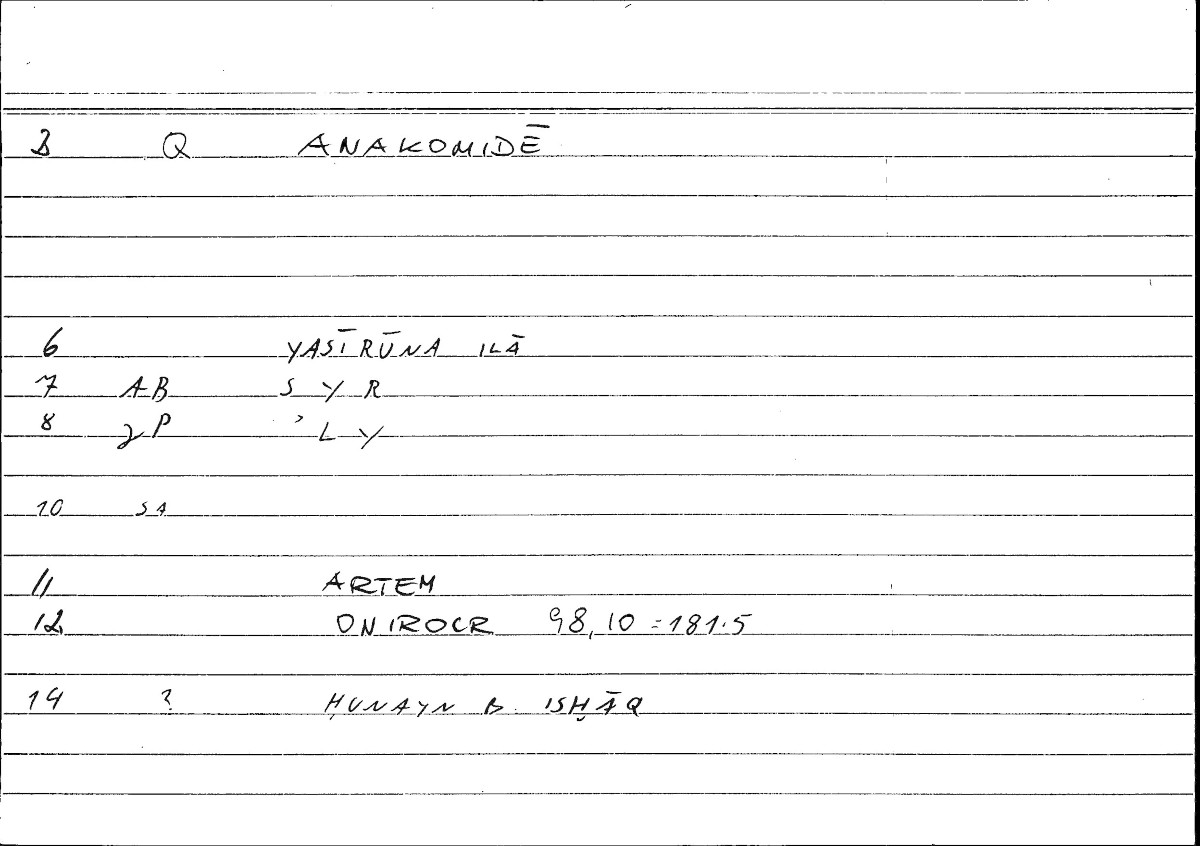 3 Q ANAKOMIDĒ
6 YASĪRŪNA ILĀ
7 AB S Y R
8 2P ʾ L Y
10 SA
11 ARTEM
12 ONIROCR 98,10 = 181.5
14 ? ḤUNAYN B. ISḤĀQ